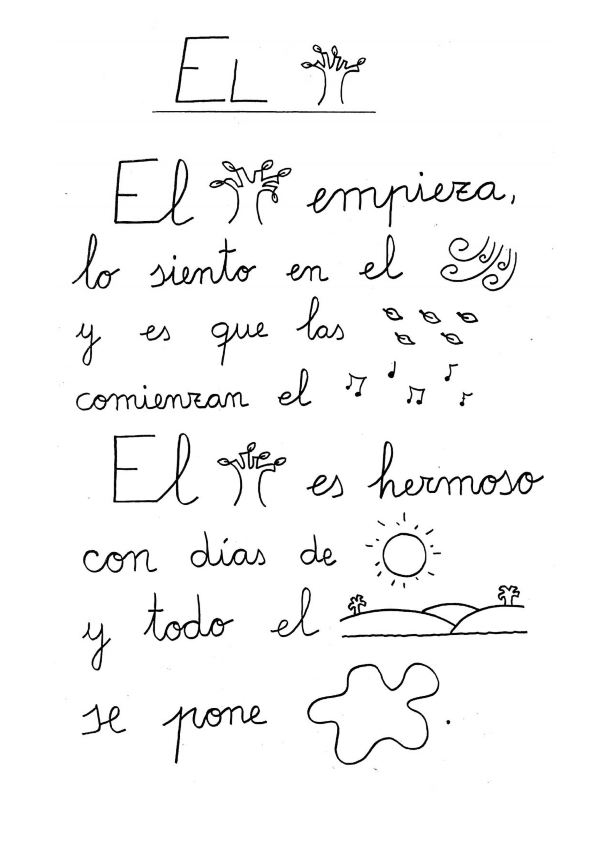 EL
El empieza,
lo siento en el
y es que las
comienzan el
El es hermoso
con días de
y todo el
se pone .